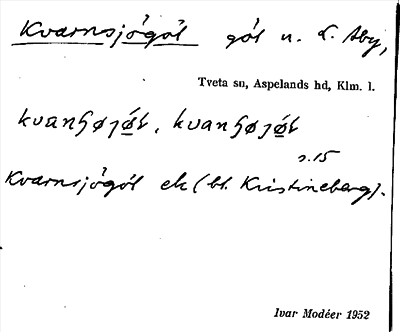 Kvarnsjögöl göl n. L. Aby,
Tveta sn, Aspelands hd, Klm. l.
s. 15
Kvarnsjögöl ek (bl. Kristineberg).
Ivar Modéer 1952